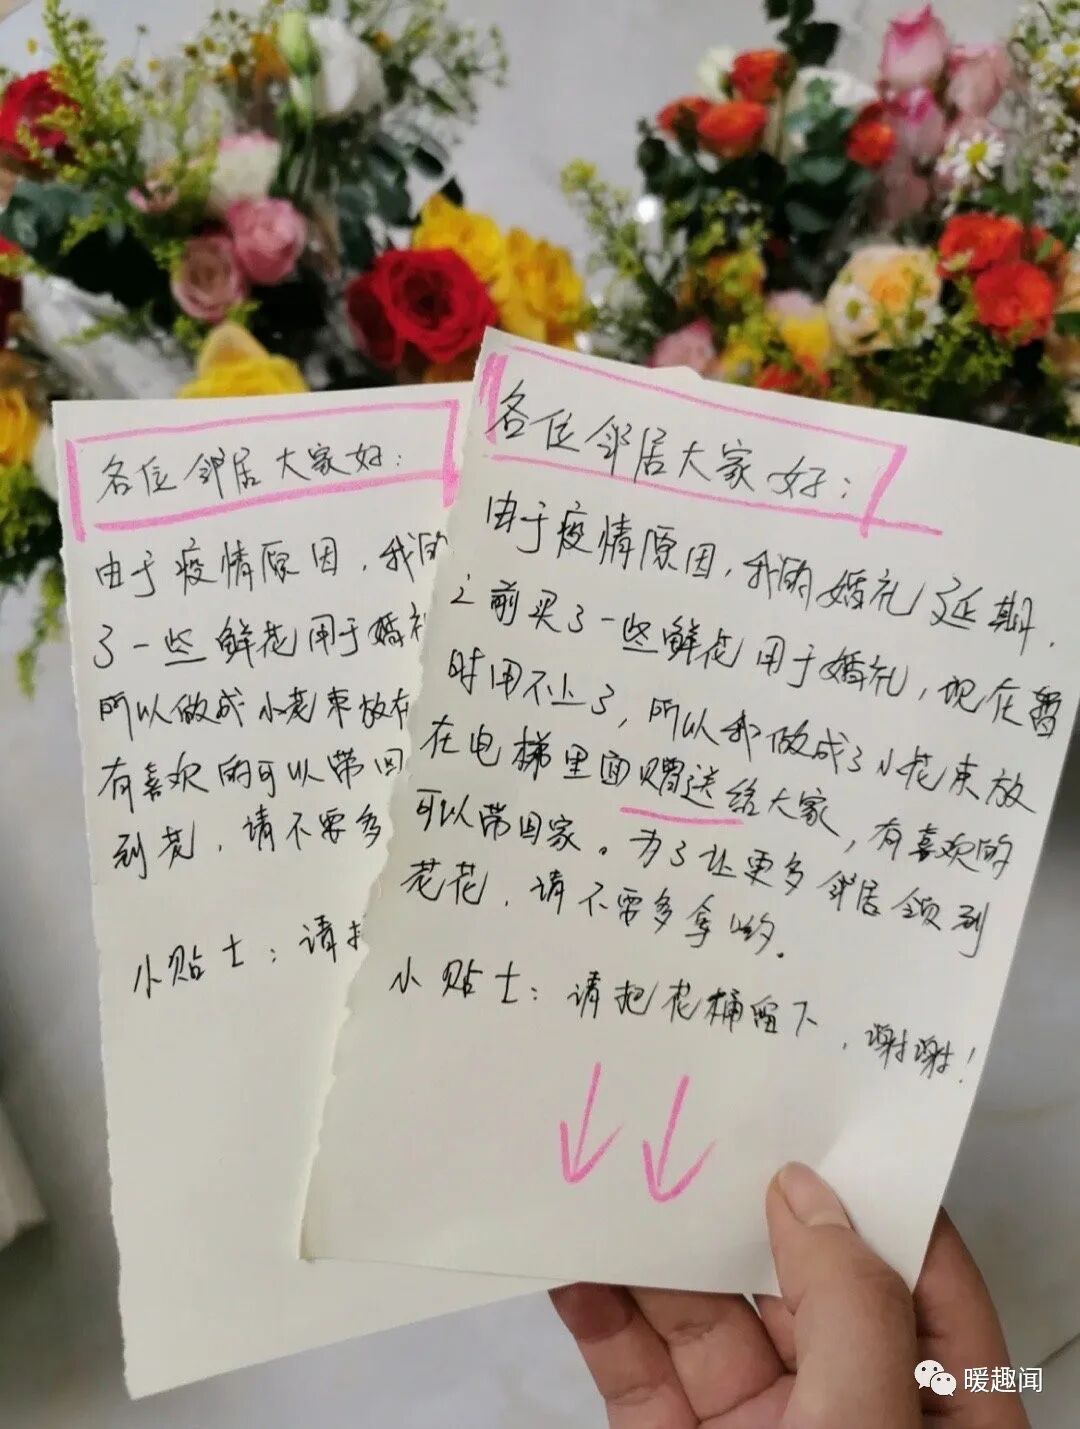 各位邻居大家好：
由于疫情原因，我的
了一些鲜花用于婚礼
所以做成小花束放在
有喜欢的可以带回
到花，请不要多
小贴士：请把
各位邻居大家好：
由于疫情原因，我的婚礼延期，
之前买了一些鲜花用于婚礼，现在暂
时用不上了，所以我做成了小花束放
在电梯里面赠送给大家，有喜欢的
可以带回家。为了让更多邻居领到
花花，请不要多拿哟。
小贴士：请把花桶留下，谢谢！
暖趣闻